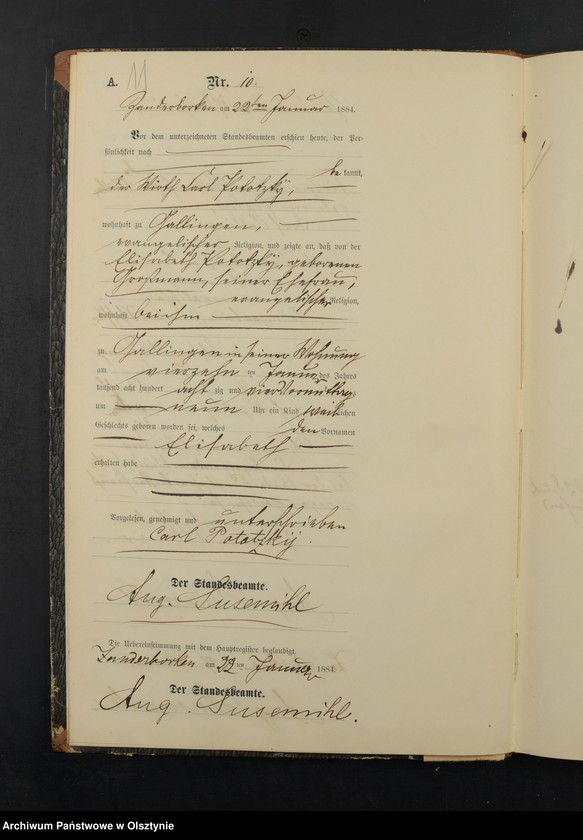 A. 11 Nr. 10.
Zanderborken am 22ten Januar 1884.
Vor dem unterzeichneten Standesbeamten erschien heute, der Per-
sönlichkeit nach
be kannt,
der Wirth Carl Pototzky,
wohnhaft zu Gallingen,
evangelischer Religion, und zeigte an, daß von der
Elisabeth Pototzky, geborenen
Großmann, seiner Ehefrau,
evangelischer Religion,
wohnhaft bei ihm
zu Gallingen in seiner Wohnung
am vierzehn ten Januar des Jahres
tausend acht hundert acht zig und vier Vormittags
um neun Uhr ein Kind weib lichen
Geschlechts geboren worden sei, welches den Vornamen
Elisabeth
erhalten habe
Vorgelesen, genehmigt und unterschrieben
Carl Pototzkij.
Der Standesbeamte.
Aug. Susemihl
Die Uebereinstimmung mit dem Hauptregister beglaubigt.
Zanderborken am 22 ten Januar 1884.
Der Standesbeamte.
Aug. Susemihl.
Archiwum Państwowe w Olsztynie